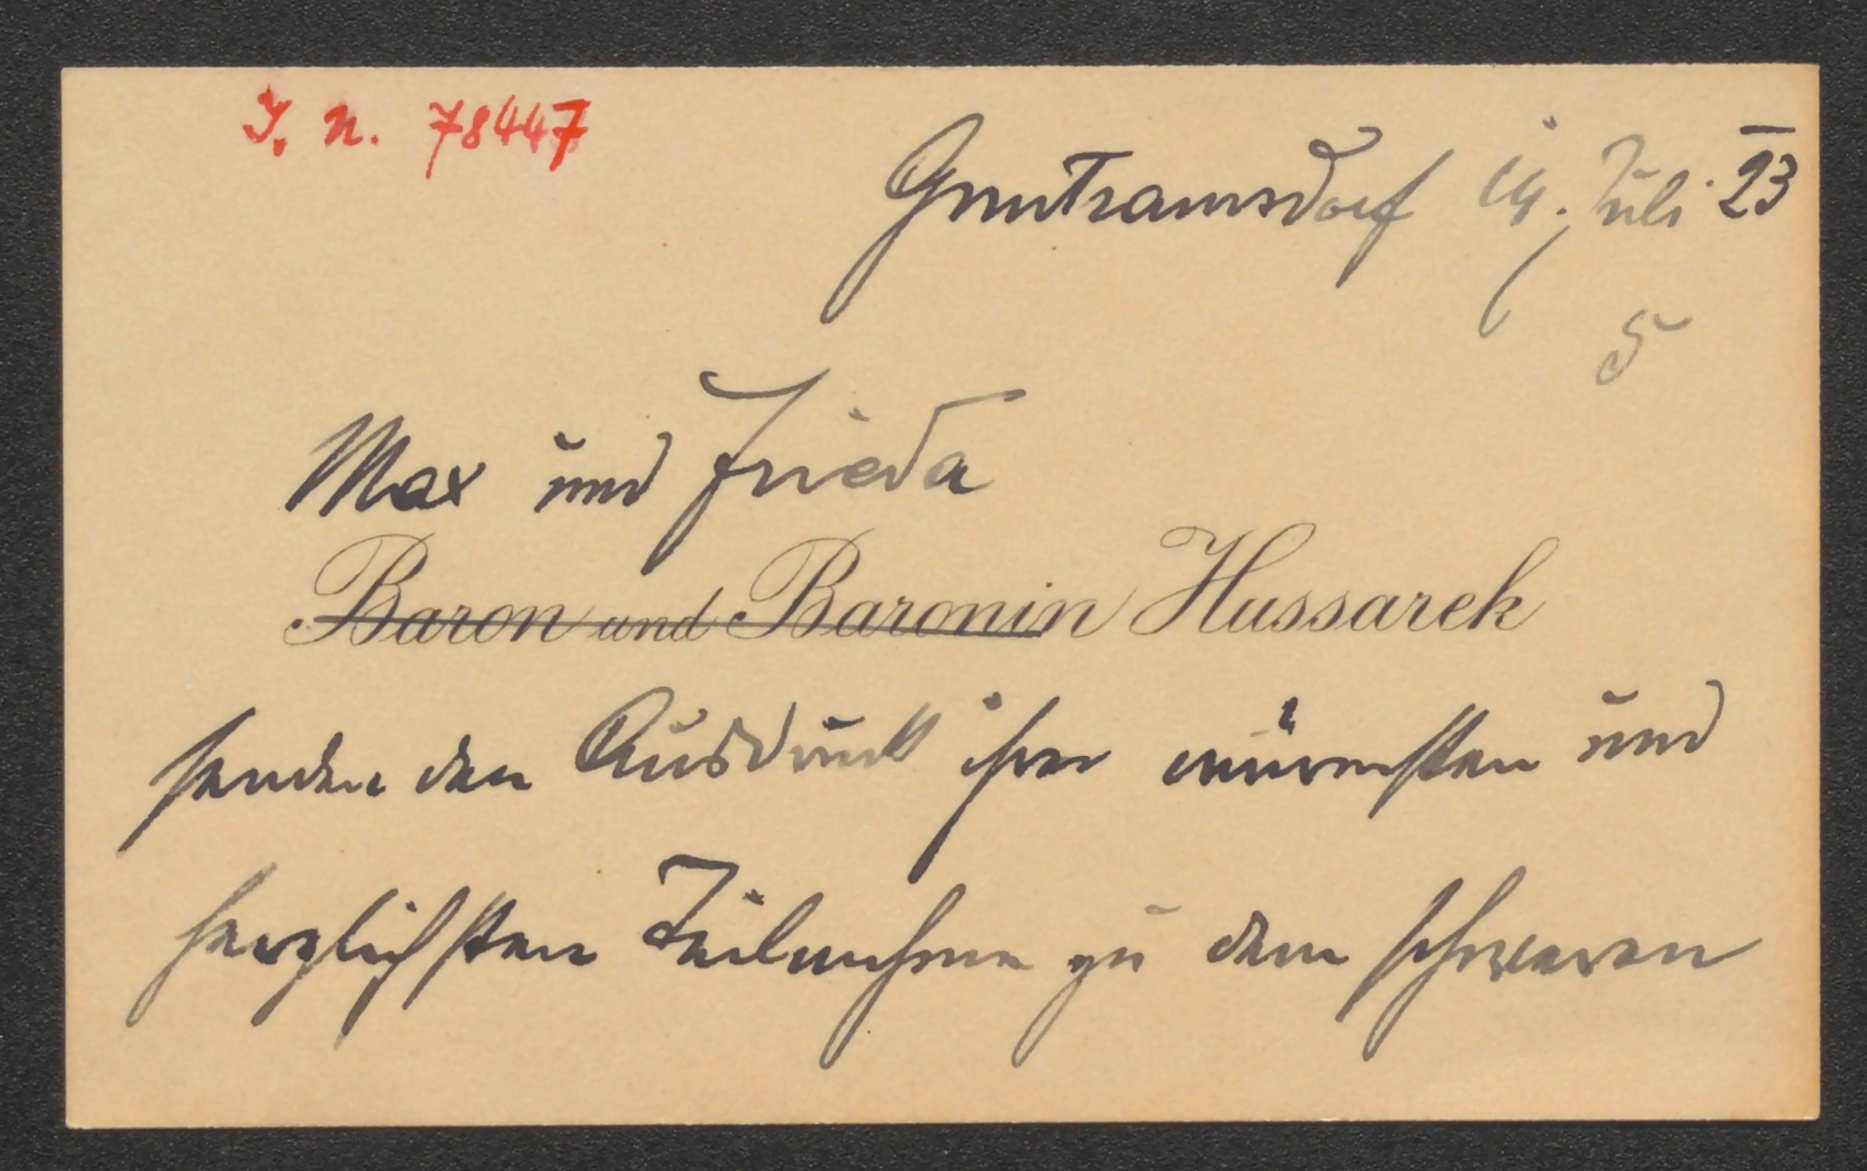 I. N. 78447
Guntramsdorf 14. Juli 23
5
Max und Frieda
Baron und Baronin Hussarek
senden den Ausdruck ihrer wärmsten und
herzlichsten Teilnahme zu dem schweren